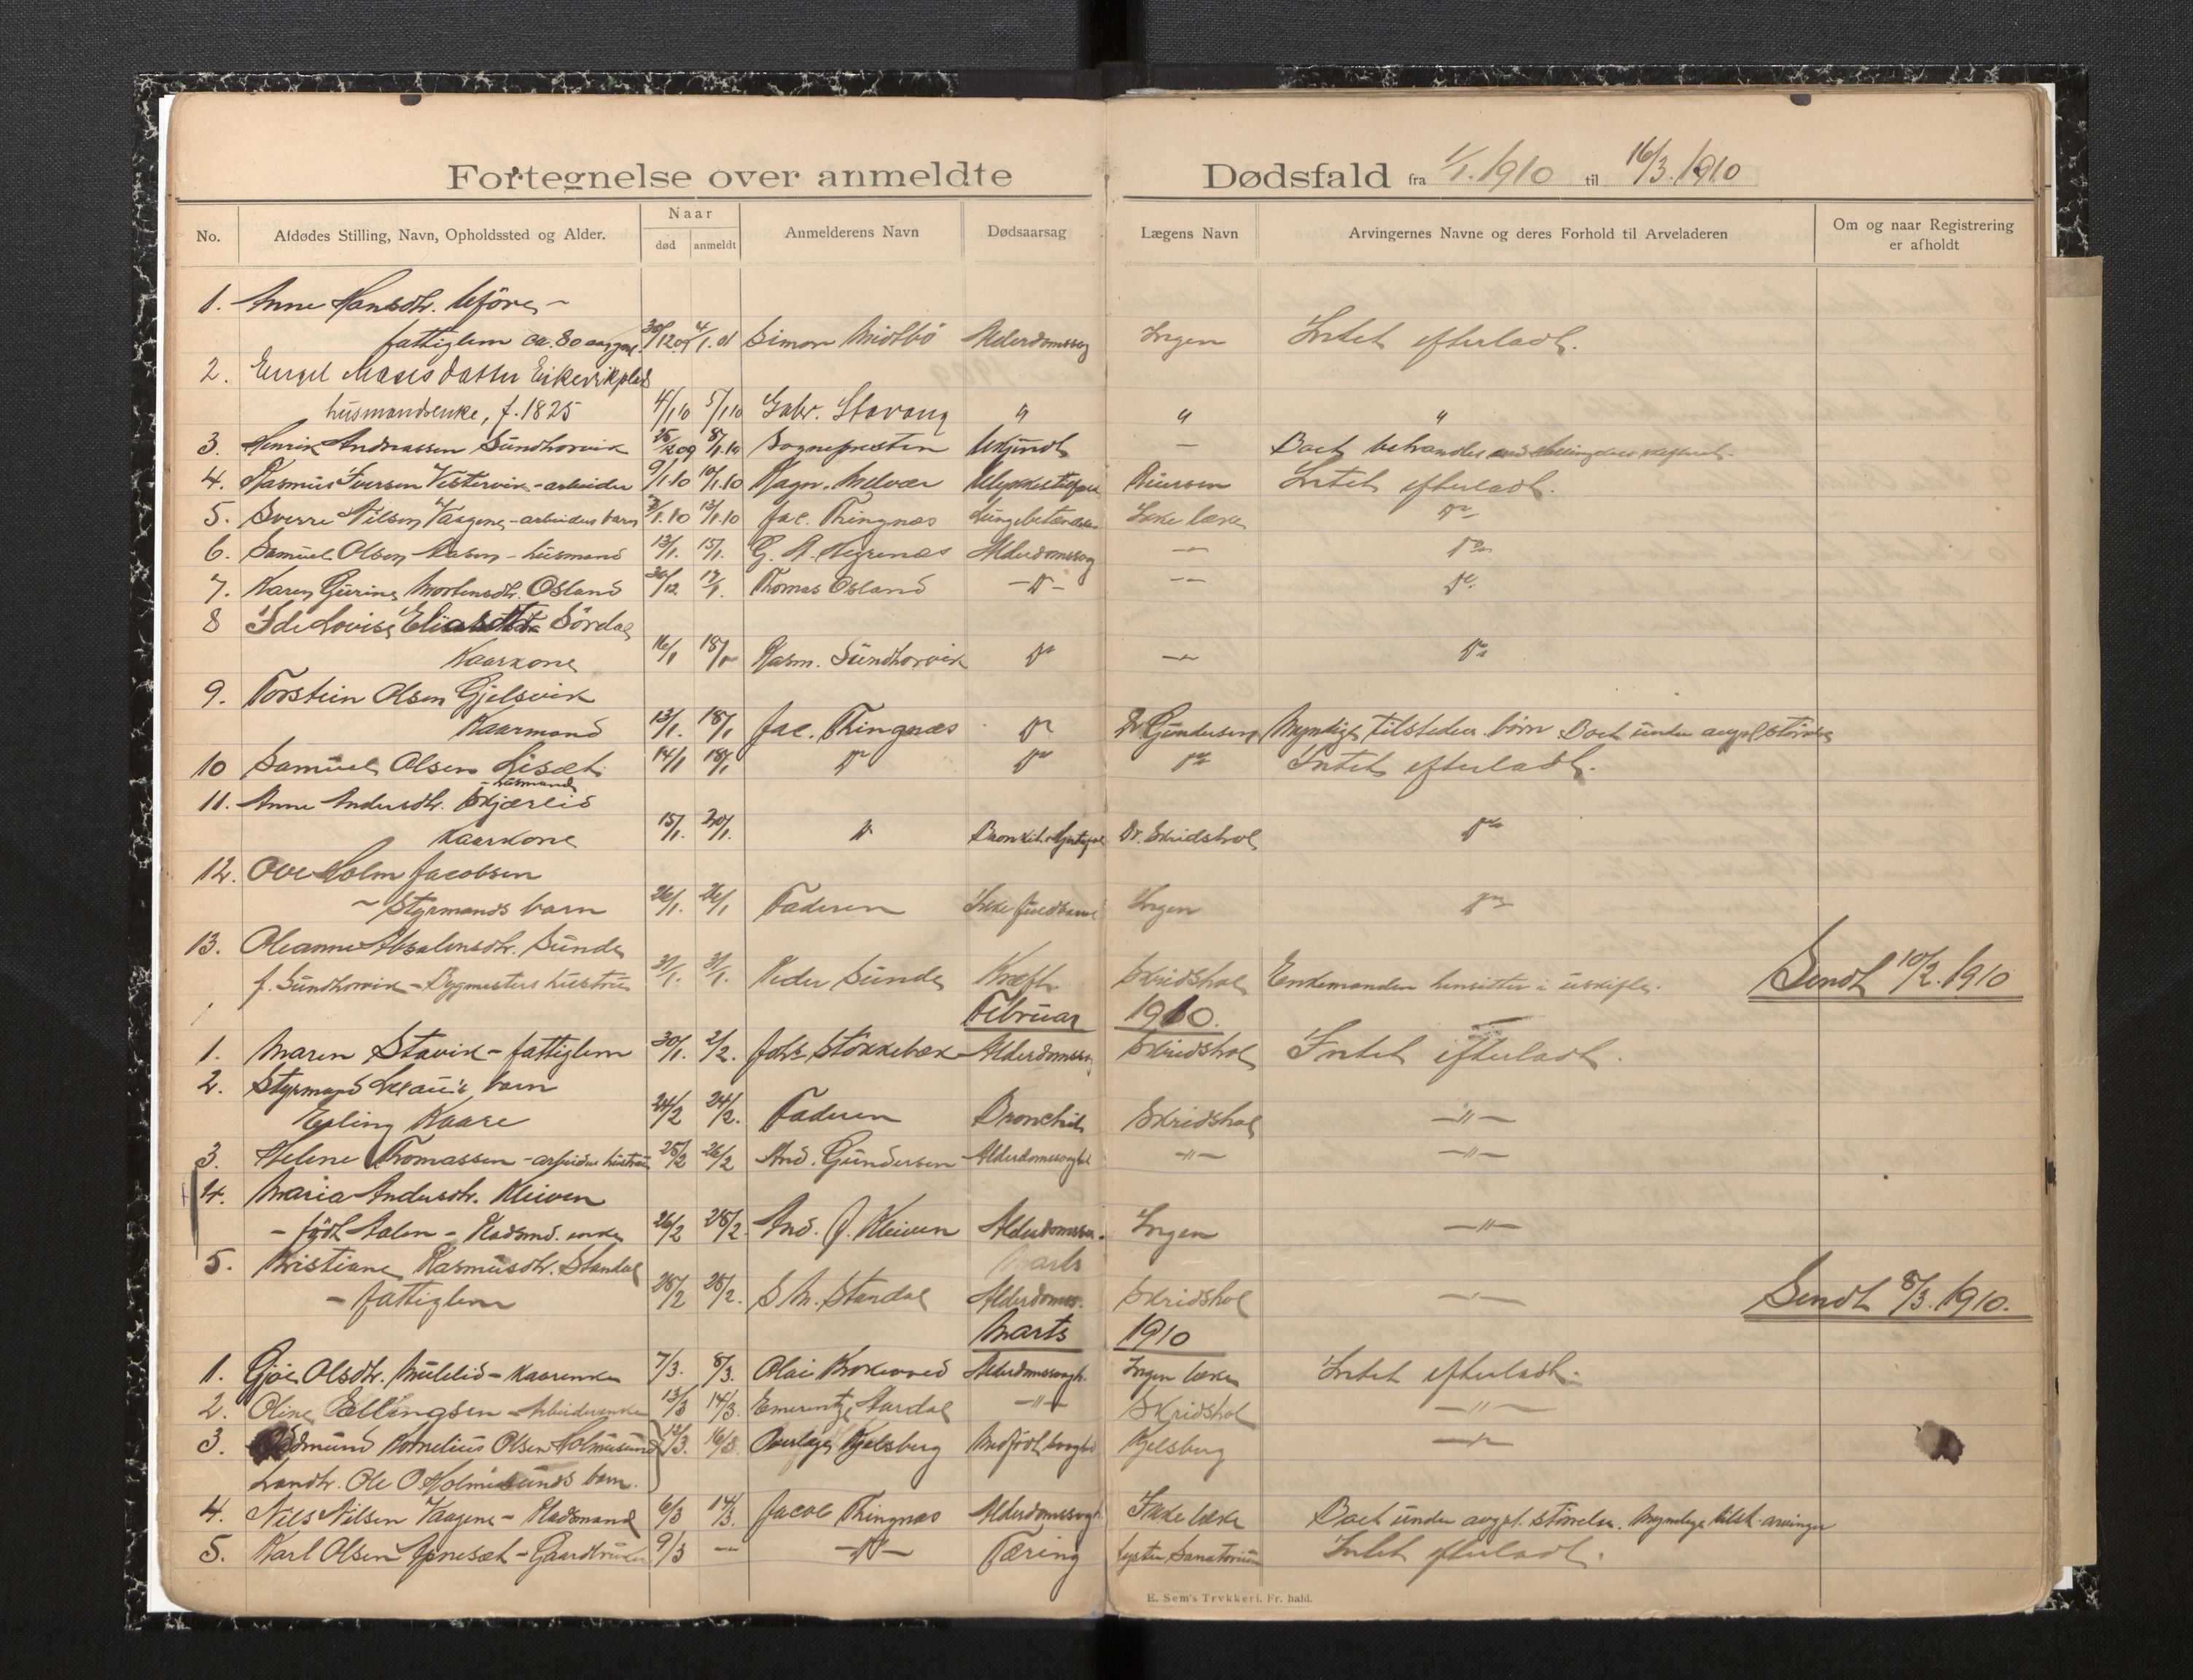 Fortegnelse over anmeldte Dødsfald fra 1/1.1910 til 16/3.1910
No. Afdødes Stilling, Navn, Opholdssted og Alder. Naar død anmeldt Anmelderens Navn Dødsaarsag Lægens Navn Arvingernes Navne og deres Forhold til Arveladeren Om og naar Registrering er afholdt
1. Anne Hansdtr.
fattiglem ca. 80 aar gml. 30/12.09 4/1. Simon Midtbö Alderdomssvag Ingen Intet efterladt.
2. Engel Mons datter Eikevikplads
husmandsenke, f. 1825 4/1 10 5/1 10 Gabr. Stavang " " "
3. Henrik Andreassen Sundhorvik 25/12 09 8/1.10 Sognepresten Ukjendt — Boet behandles
4. Rasmus Iversen Vestervik - arbeider 9/1.10 10/1.10 Ragn. Melvær Ulykkestilfæl Intet efterladt.
5. Sverre Nilsen Vaagene - arbeiders barn 2/1.10 13/1.10 Jac. Thingnæs Lungebetændelse Ikke læge Do
6. Samuel Olsen - husmand 13/1. 15/1. G. A. Hegrenæs Alderdomssvag — Do
7. Karen Gurine Mortensdtr. Osland 30/12 17/1. Thomas Osland - Do - — Do
8 Ida Lovise Eliasdtr Sördal
Kaarkone 16/1 18/1 Rasm. Sundhorvik Do — Do
9. Torstein Olsen Gjelsvik
Kaarmand 13/1. 18/1 Jac. Thingnæs Do Dr Gundersen Myndige tilstedev. börn. Boet under størrelse
10 Samuel Olsen Liset
- husmand 14/1 18/1 Do Do Do Intet efterladt.
11. Anne Andersdtr. Skjærlid
Kaarkone 15/1. 20/1. Do Dr. Skridshol Do
12. Ove Holm Jacobsen
- Styrmands barn 26/1. 26/1 Faderen Ikke fuldbaaret Ingen Do
13. Oleanne Absalonsdtr. Sunde
f. Sundhorvik - Bygmesters hustru 31/1. 31/1. Peder Sunde Kræft Skridshol Enkemanden hensitter i uskifte. Sendt 10/2.1910
Februar 1910.
1. Maren Stavik - fattiglem 30/1. 2/2. Johs. Stokkebæk Alderdomssv. Skridshol Intet efterladt.
2. Styrmand barn
Erling Kaare 24/2 24/2. Faderen Bronchit Skridshol — " —
3. Helene Thomassen - arbeiders hustru 25/2 26/2 And. Gundersen Alderdomssvaghed — " — — " —
4. Maria Andersdtr. Kleiven
- född - Pladsmd. enke 26/2 28/2. And. J. Kleiven Alderdomssv. Ingen — " —
5. Kristiane Rasmusdtr. Standal Marts
- fattiglem 25/2 28/2. S M. Standal Alderdoms. Skridshol — " — Sendt 8/3.1910.
Marts 1910
1. Gjöe Olsdtr. - Kaarenke 7/3. 8/3. Olai Alderdomssvagh. Ingen læge Intet efterladt.
2. Oline Ellingsen - Arbeiderenke 13/3 14/3. Emerentze Aardal — " — Skridshol — " —
3. Edmund Kornelius Olsen Holmesund 12/3. 16/3. Overlæge Kjelsberg Medfödt svaghed Kjelsberg — " —
Landh. Ole O. Holmesunds barn.
4. Nils Nilsen Vaagene - Pladsmand 6/3 14/3. Jacob Thingnæs Alderdomssvagh. Ikke læge Boet under størrelse. Myndige tilst. arvinger
5. Karl Olsen - Gaardbruker 9/3 — — Do — Tæring Lyster Sanatorium Intet efterladt.
E. Sem's Trykkeri, Fr.hald.